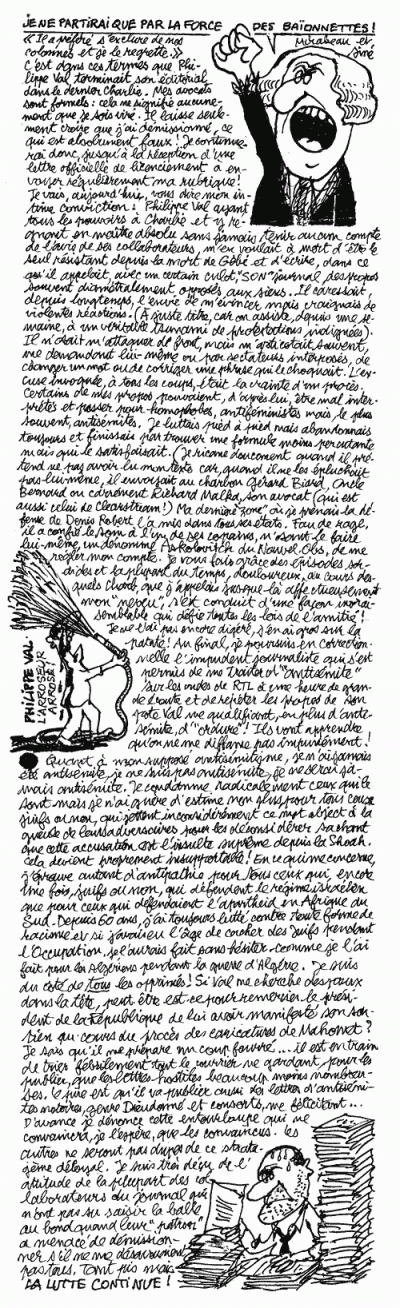 JE NE PARTIRAI QUE PAR LA FORCE DES BAÏONNETTES !
Mirabeau et Siné
« Il a préféré s'exclure de nos
colonnes et je le regrette. »
C'est dans ces termes que Phi-
lippe Val terminait son éditorial
dans le dernier Charlie. Mes avocats
sont formels : cela ne signifie aucune-
ment que je sois viré. Il laisse seule-
ment croire que j'ai démissionné, ce
qui est absolument faux ! Je continue-
rai donc, jusqu'à la réception d'une
lettre officielle de licenciement à en-
voyer régulièrement ma rubrique !
Je vais, aujourd'hui, vous dire mon in-
time conviction : Philippe Val ayant
tous les pouvoirs à Charlie et y ré-
gnant en maître absolu sans jamais tenir aucun compte
de l'avis de ses collaborateurs, m'en voulait à mort d'être le
seul résistant depuis la mort de Gébé et d'écrire, dans ce
qu'il appelait, avec un certain culot, "SON" journal, des propos
souvent diamétralement opposés aux siens. Il caressait,
depuis longtemps, l'envie de m'évincer mais craignait de
violentes réactions. (À juste titre, car on assiste, depuis une se-
maine, à un véritable tsunami de protestations indignées).
Il n'osait m'attaquer de front, mais m'asticotait souvent,
me demandant lui-même ou par sectateurs interposés, de
changer un mot ou de corriger une phrase qui le choquait. L'ex-
cuse invoquée, à tous les coups, était la crainte d'un procès.
Certains de mes propos pouvaient, d'après lui, être mal inter-
prétés et passer pour homophobes, antiféministes mais le plus
souvent, antisémites. Je luttais pied à pied mais abandonnais
toujours et finissais par trouver une formule moins percutante
mais qui le satisfaisait. (Je ricane doucement quand il pré-
tend ne pas avoir lu mon texte car, quand il ne les épluchait
pas lui-même, il envoyait au charbon Gérard Biard, Oncle
Bernard ou carrément Richard Malka, son avocat (qui est
aussi celui de Clearstream !) Ma dernière zone où je prenais la dé-
fense de Denis Robert l'a mis dans tous ses états. Fou de rage,
il a confié le soin à l'un de ses copains, n'osant le faire
lui-même, un dénommé Askolovitch du Nouvel Obs, de me
régler mon compte. Je vous fais grâce des épisodes, sor-
dides et la plupart du temps, douloureux, au cours des-
quels Charb, que j'appelais jusque-là affectueusement
mon "neveu", s'est conduit d'une façon invrai-
semblable qui défie toutes les lois de l'amitié !
Je ne l'ai pas encore digéré, j'en ai gros sur la
patate ! Au final, je poursuis en correction-
nelle l'impudent journaliste qui s'est
permis de me traiter d'"antisémite"
sur les ondes de RTL à une heure de gran-
de écoute et de répéter les propos de son
pote Val me qualifiant, en plus d'anti-
sémite, d'"ordure" ! Ils vont apprendre
qu'on ne me diffame pas impunément !
PHILIPPE VAL
L'ARROSEUR
ARROSÉ !
Quant à mon supposé antisémitisme, je n'ai jamais
été antisémite, je ne suis pas antisémite, je ne serai ja-
mais antisémite. Je condamne radicalement ceux qui le
sont mais je n'ai guère d'estime non plus pour tous ceux,
juifs ou non, qui jettent inconsidérément ce mot abject à la
gueule de leurs adversaires pour les déconsidérer sachant
que cette accusation est l'insulte suprême depuis la Shoah.
Cela devient proprement insupportable ! En ce qui me concerne,
j'éprouve autant d'antipathie pour tous ceux qui, encore
une fois, juifs ou non, qui défendent le régime israélien
que pour ceux qui défendaient l'apartheid en Afrique du
Sud. Depuis 60 ans, j'ai toujours lutté contre toute forme de
racisme et si j'avais eu l'âge de cacher des Juifs pendant
l'Occupation, je l'aurais fait sans hésiter comme je l'ai
fait pour les Algériens pendant la guerre d'Algérie. Je suis
du côté de tous les opprimés ! Si Val me cherche des poux
dans la tête, peut être est-ce pour remercier le prési-
dent de la République de lui avoir manifesté son sou-
tien au cours du procès des caricatures de Mahomet ?
Je sais qu'il me prépare un coup fourré... il est en train
de trier fébrilement tout le courrier ne gardant, pour les
publier, que les lettres hostiles beaucoup moins nombreu-
ses. Le pire est qu'il va publier aussi des lettres d'antisémi-
tes notoires, genre Dieudonné et consorts, me félicitant...
D'avance je dénonce cette entourloupe qui ne
convaincra, je l'espère, que les convaincus. Les
autres ne seront pas dupes de ce strata-
gème déloyal. Je suis très déçu de l'
attitude de la plupart des col
laborateurs du journal qui
n'ont pas su saisir la balle
au bond quand leur "patron"
a menacé de démission-
ner s'il ne me désavouaient
pas tous. Tant pis mais
LA LUTTE CONTINUE !